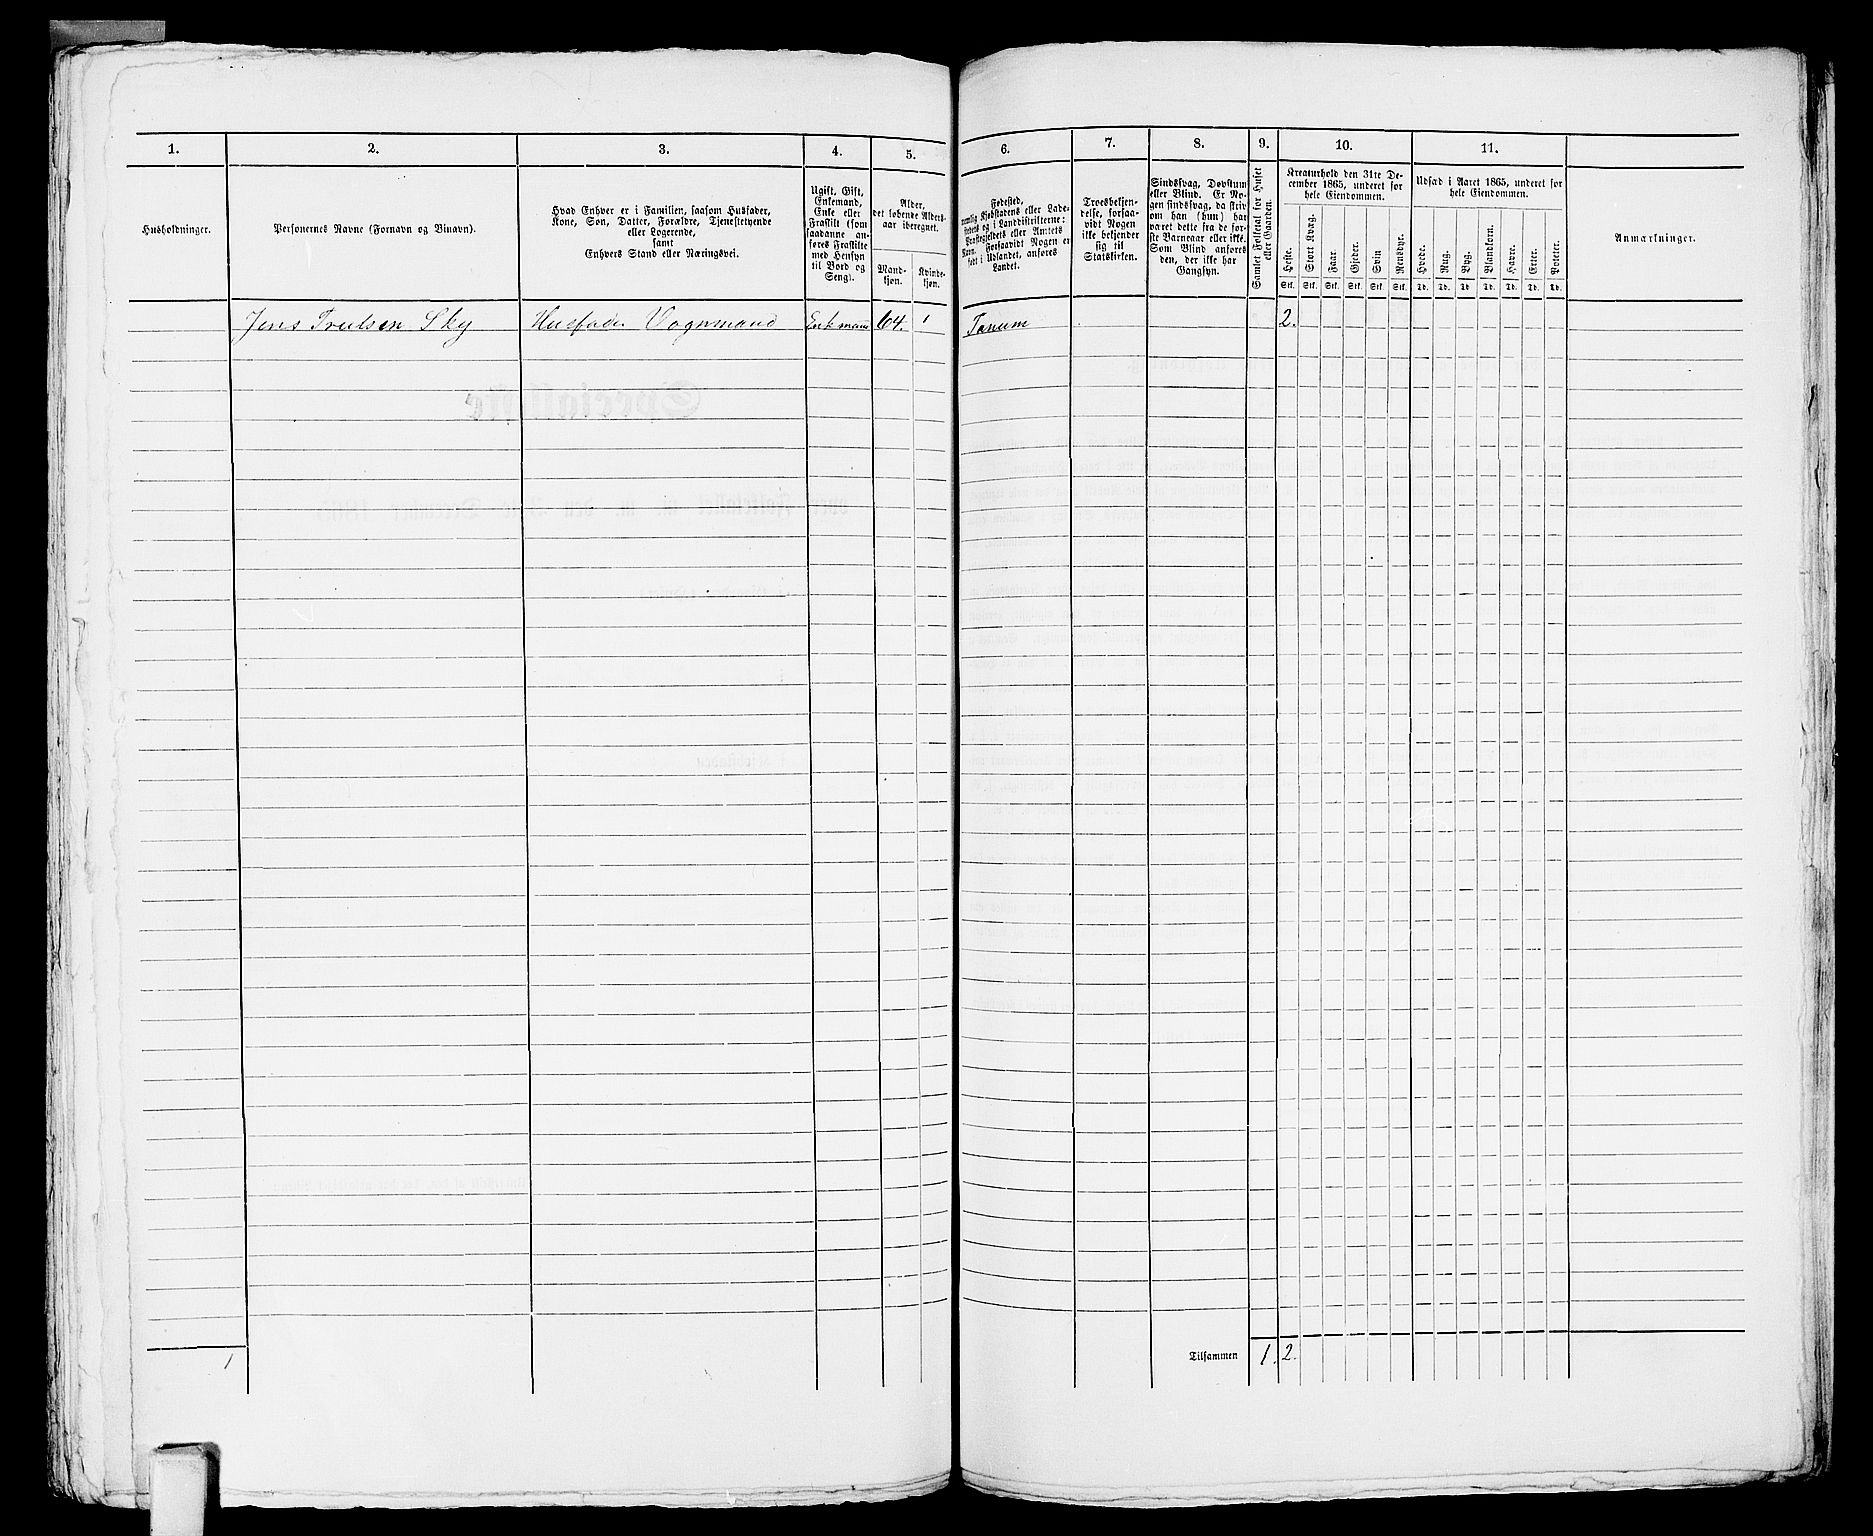 1. 2. 3. 4. 5. 6. 7. 8. 9. 10. 11.
Husholdninger.
Personernes Navne (Fornavn og Binavn).
Hvad Enhver er i Familien, saasom Husfader,
Kone, Søn, Datter, Forældre, Tjenestetyende
eller Logerende,
samt
Enhvers Stand eller Næringsvei.
Ugift, Gift,
Enkemand,
Enke eller
Fraskilt (som
saadanne an-
føres Fraskilte
med Hensyn
til Bord og
Seng).
Alder,
det løbende Alders-
aar iberegnet.
Mand-
kjøn.
Kvinde-
kjøn.
Fødested,
nemlig Kjøbstadens eller Lade-
stedets og i Landdistrikterne:
Præstegjeldets eller Amtets
Navn. Forsaavidt Nogen er
født i Udlandet, anføres
Landet.
Troesbekjen-
delse, forsaa-
vidt Nogen
ikke bekjender
sig til
Statskirken.
Sindssvag, Døvstum
eller Blind. Er No-
gen sindssvag, da skriv
om han (hun) har
været dette fra de før-
ste Barneaar eller ikke.
Som Blind anføres
den, der ikke har
Gangsyn.
Samlet Folketal for Huset
eller Gaarden.
Kreaturhold den 31te De-
cember 1865, underet for
hele Eiendommen.
Heste. Stort Kvæg. Faar. Gjeder. Svin Rensdyr.
Stk. Stk. Stk. Stk. Stk. Stk.
Udsæd i Aaret 1865, underet for
hele Eiendommen.
Hvede. Rug. Byg. Blandkorn. Havre. Erter. Poteter.
Td. Td. Td. Td. Td. Td. Td.
Anmærkninger.
Jens Trulsen Sky Husfader Vognmand Enkemand 64. 1 Tanum 2.
1 Tilsammen 1. 2.